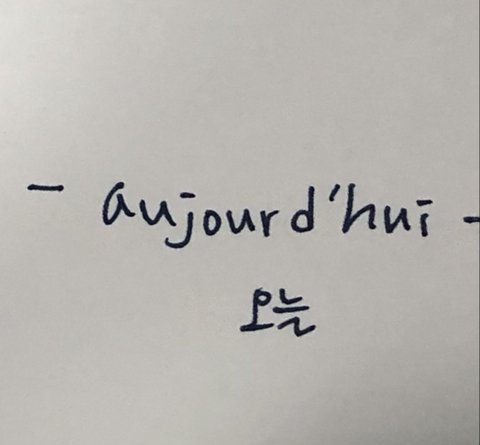 - aujourd'hui -
오늘